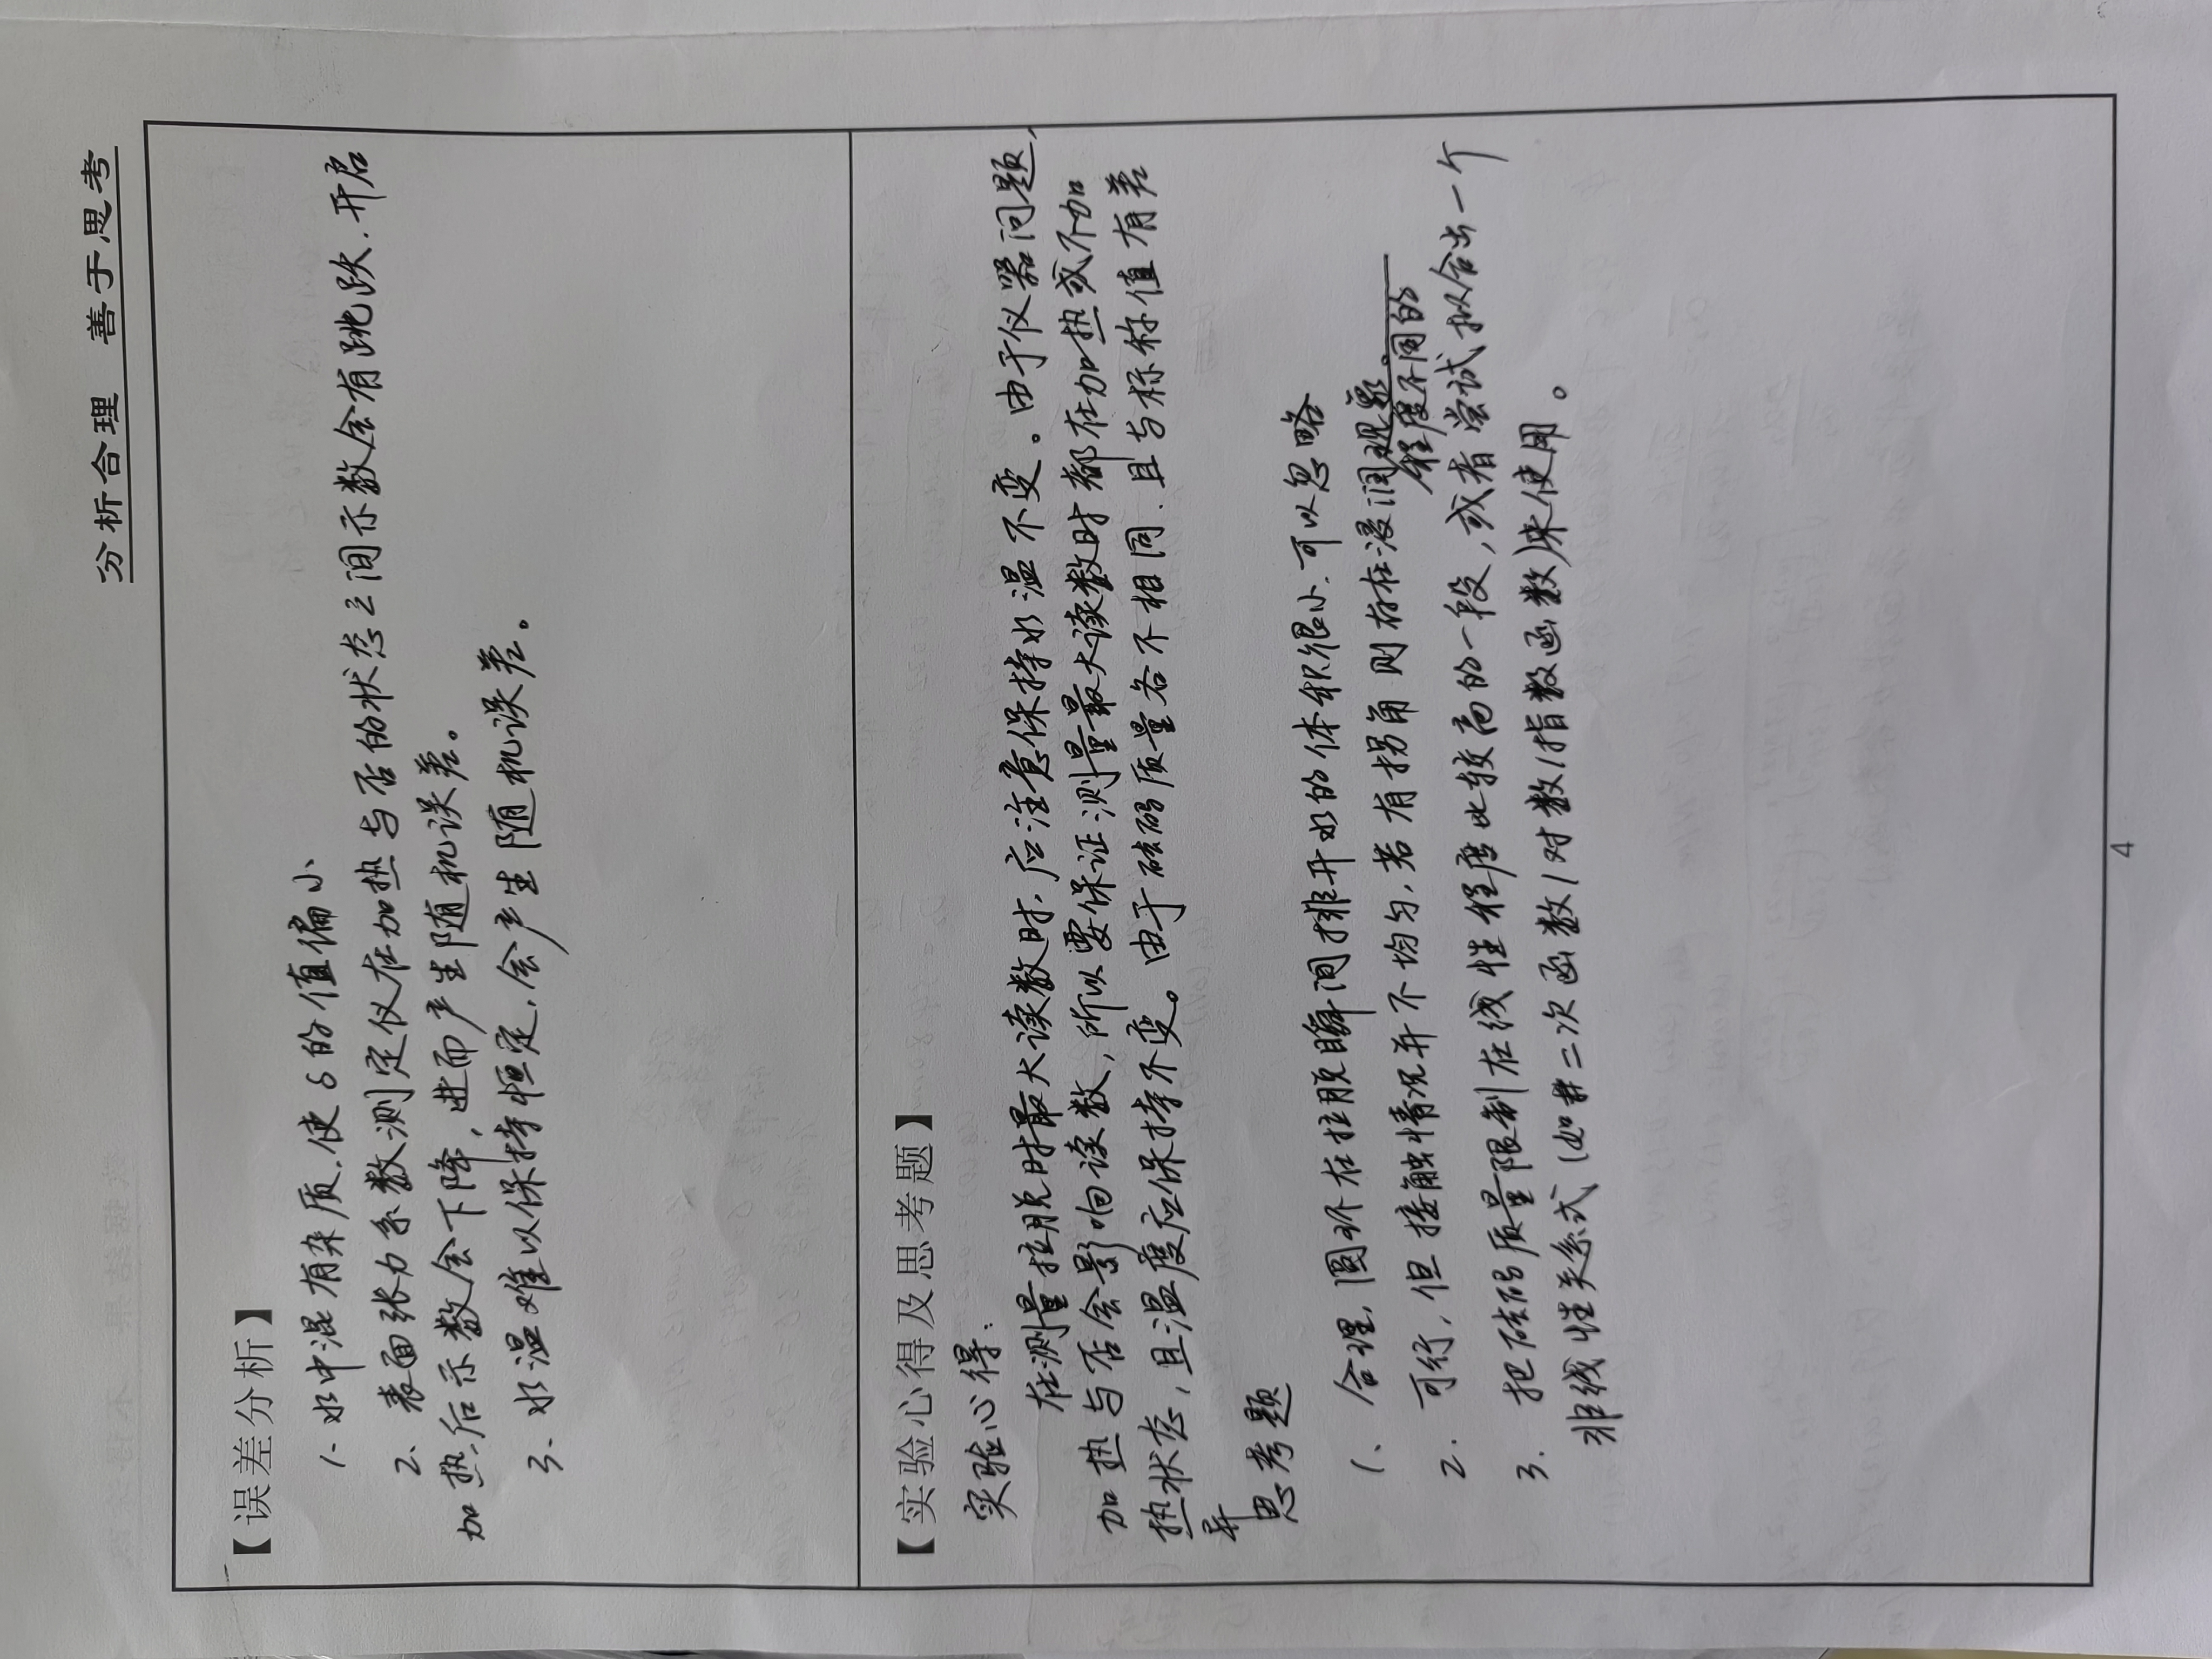 分析合理 善于思考
【误差分析】
1. 水中混有杂质，使δ的值偏小
2. 表面张力系数测定仪在加热与否的状态之间示数会有跳跃，开启
加热后示数会下降，进而产生随机误差。
3. 水温难以保持恒定，会产生随机误差。
【实验心得及思考题】
实验心得：
在测量拉脱时最大读数时，应注意保持水温不变。由于仪器问题，
加热与否会影响读数，所以要保证测量最大读数时都在加热或不加
热状态，且温度应保持不变。由于砝码质量各不相同，且与标称值有差
异
思考题
1、合理，圆环在拉脱瞬间排开水的体积很小，可以忽略
2. 可行，但接触情况并不均匀，若有拐角则存在浸润现象。
程度不同的
3. 把砝码质量限制在线性程度比较高的一段，或者尝试拟合出一个
非线性关系式（如二次函数/对数/指数函数）来使用。
4